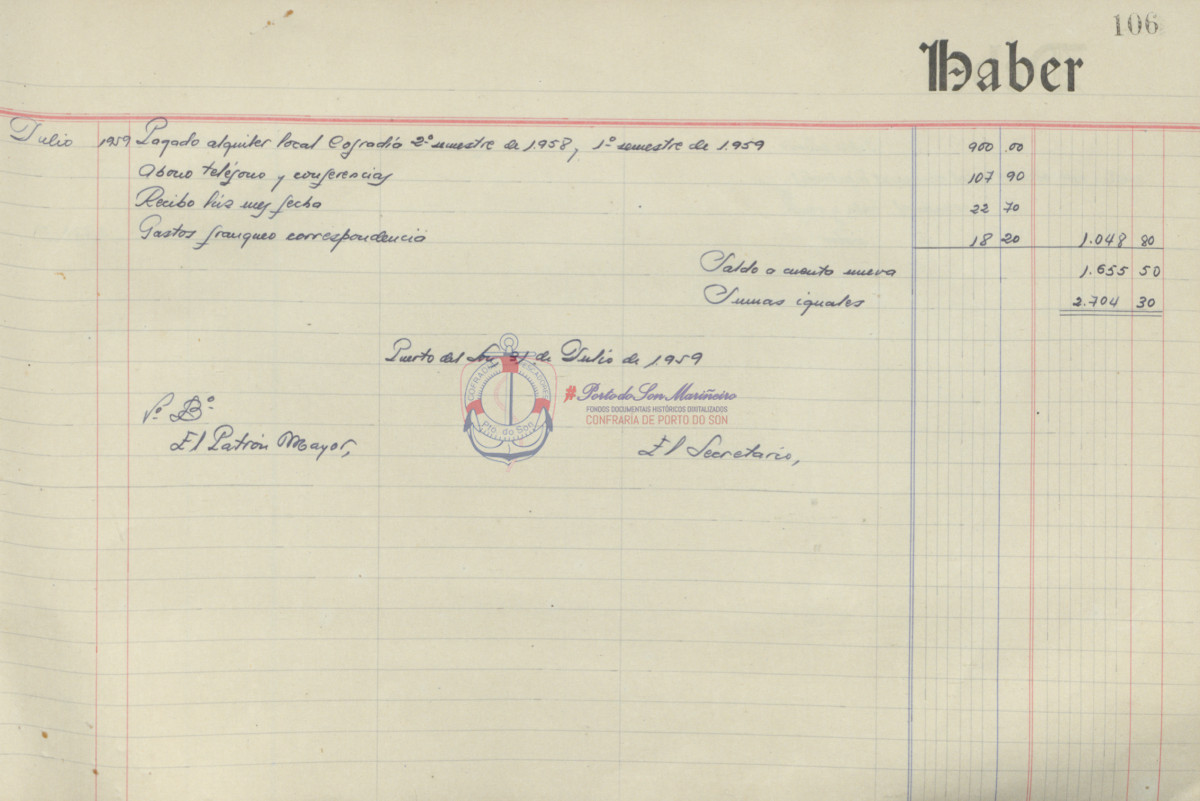 106
Haber
Julio 1959 Pagado alquiler local Cofradía 2º semestre de 1.958, 1º semestre de 1.959 900 .00
Abono teléfono y conferencias 107 90
Recibo luz mes fecha 22 70
Gastos franqueo correspondencia 18 20 1.048 80
Saldo a cuenta nueva 1.655 50
Sumas iguales 2.704 30
Puerto del Son, 31 de Julio de 1.959
COFRADÍA PESCADORES
Pto. do Son
#Porto do Son Mariñeiro
FONDOS DOCUMENTAIS HISTÓRICOS DIXITALIZADOS
CONFRARÍA DE PORTO DO SON
Vº. Bº
El Patrón Mayor,
El Secretario,